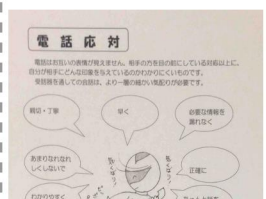 電話応対
電話はお互いの表情が見えません。相手の方を目の前にしている対応以上に、
自分が相手にどんな印象を与えているのかわかりにくいものです。
受話器を通しての会話は、より一層の細かい気配りが必要です。
親切・丁寧
早く
必要な情報を
漏れなく
あまりなれなれ
しくしないで
正確に
わかりやすく